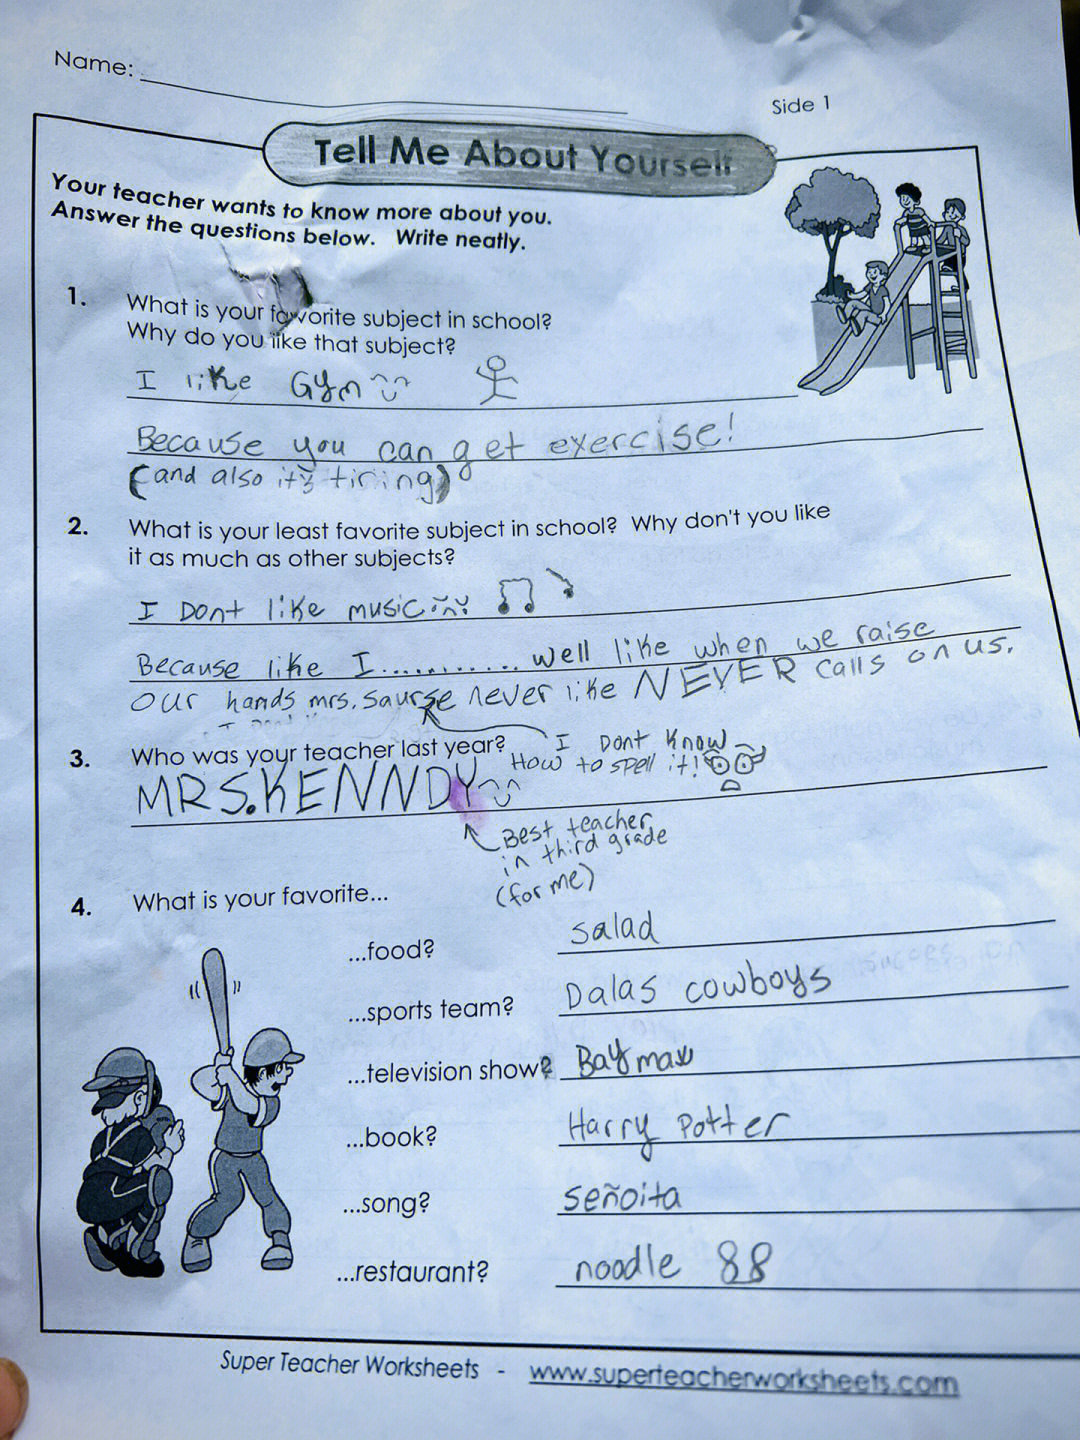 Name:
Side 1
Tell Me About Yourself
Your teacher wants to know more about you.
Answer the questions below. Write neatly.
1. What is your favorite subject in school?
Why do you like that subject?
I like Gym
Because you can get exercise!
(and also it's tiring)
2. What is your least favorite subject in school? Why don't you like
it as much as other subjects?
I Dont like music
Because like I............ well like when we raise
our hands mrs. saurse never like NEVER calls on us.
3. Who was your teacher last year?
I Dont know
How to spell it!
MRS. KENNDY
Best teacher
in third grade
(for me)
4. What is your favorite...
...food? salad
...sports team? Dalas cowboys
...television show? Baymax
...book? Harry Potter
...song? señoita
...restaurant? noodle 88
Super Teacher Worksheets - www.superteacherworksheets.com